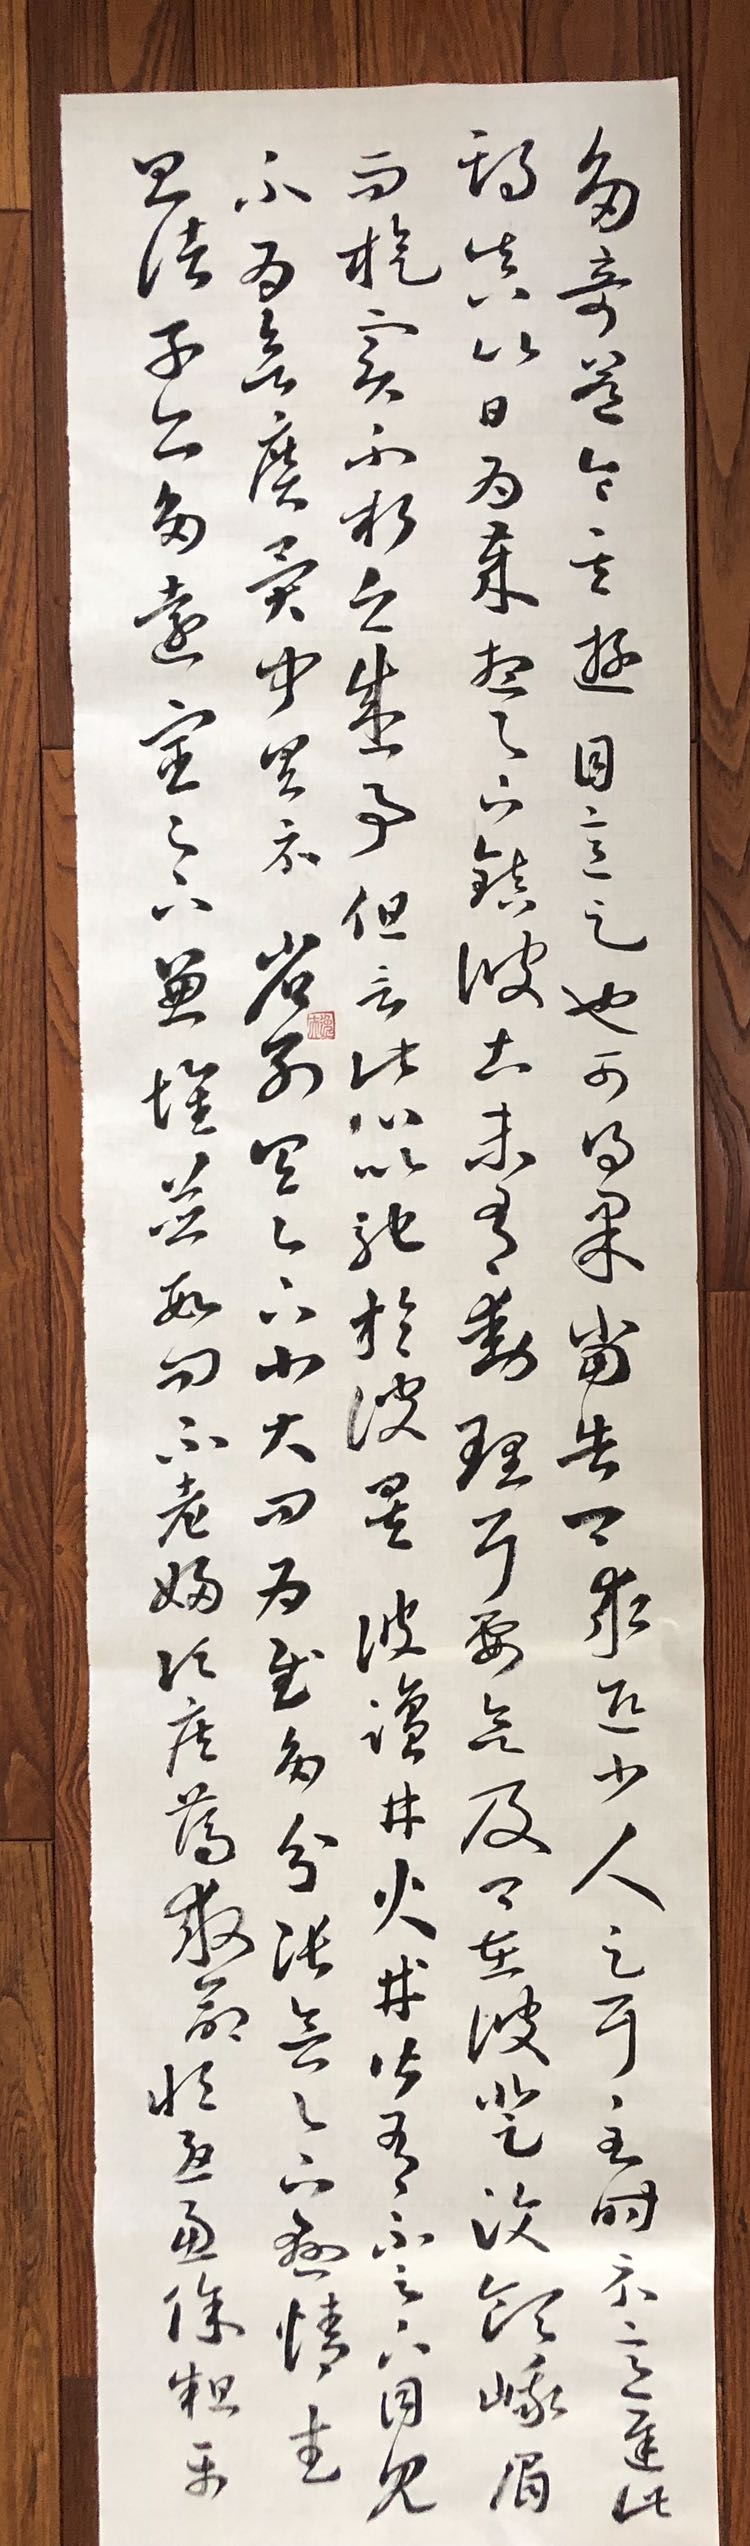 多奇益令其遊目意足也可得果當告卿求迎少人足耳至時示意遲此
期真以日為歲想足下鎮彼土未有動理耳要欲及卿在彼登汶領峨眉
而旋實不朽之盛事但言此心以馳於彼矣彼鹽井火井皆有不足下目見
不為欲廣異聞具示省別具足下小大問為慰多分張念足下懸情武
昌諸子亦多遠宦足下兼懷並數問不老婦頃疾篤救命恒憂慮餘粗平